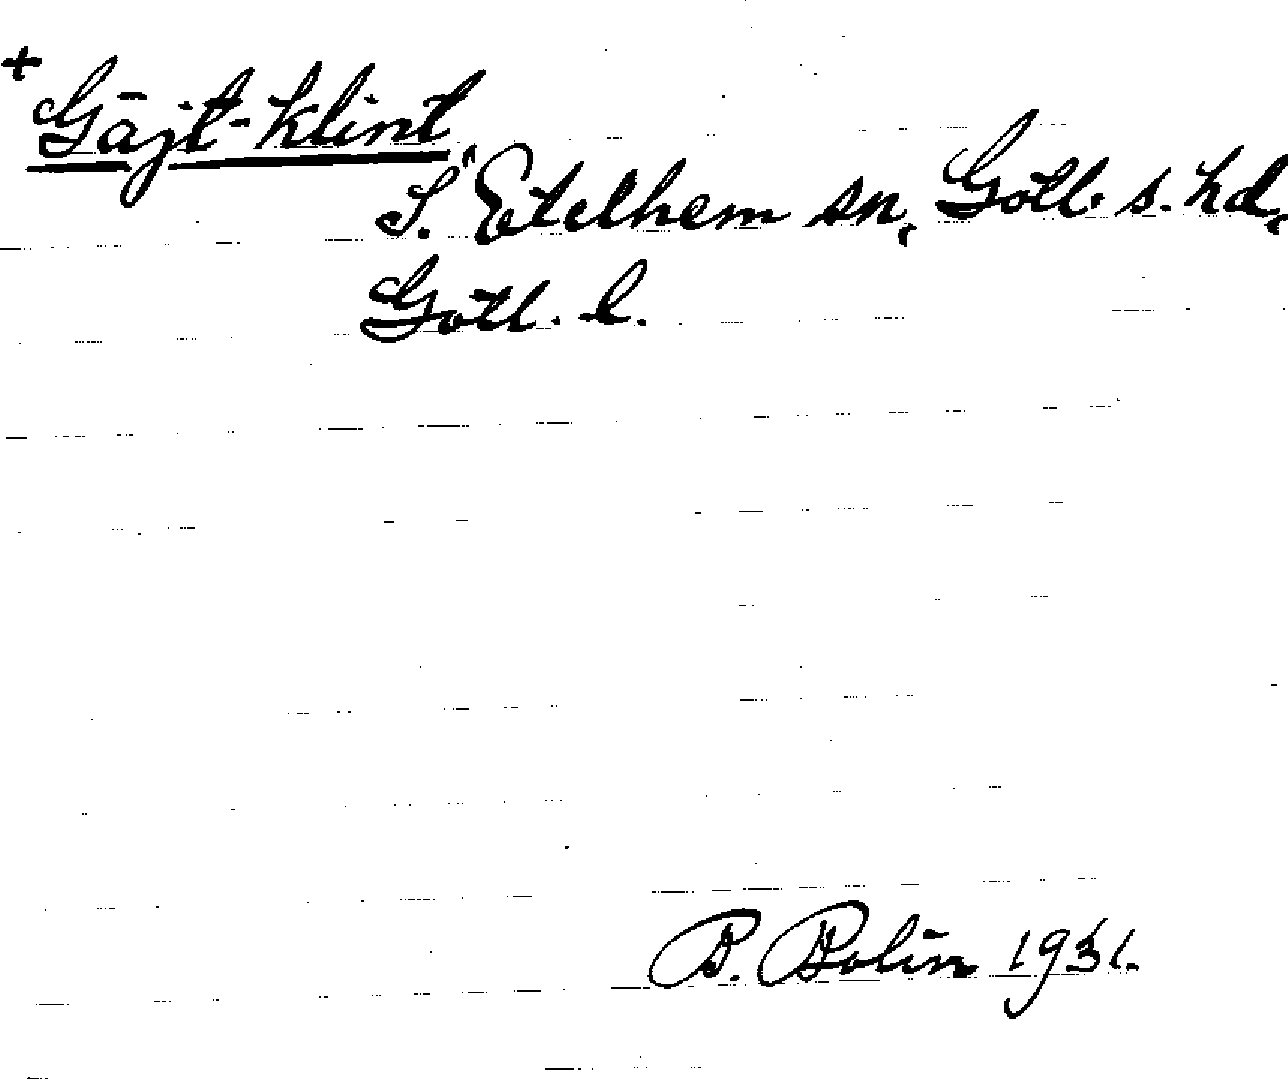 + Gājt-klint,
S. Etelhem sn, Gotl. s. hd,
Gotl. l.
B. Bolin 1931.